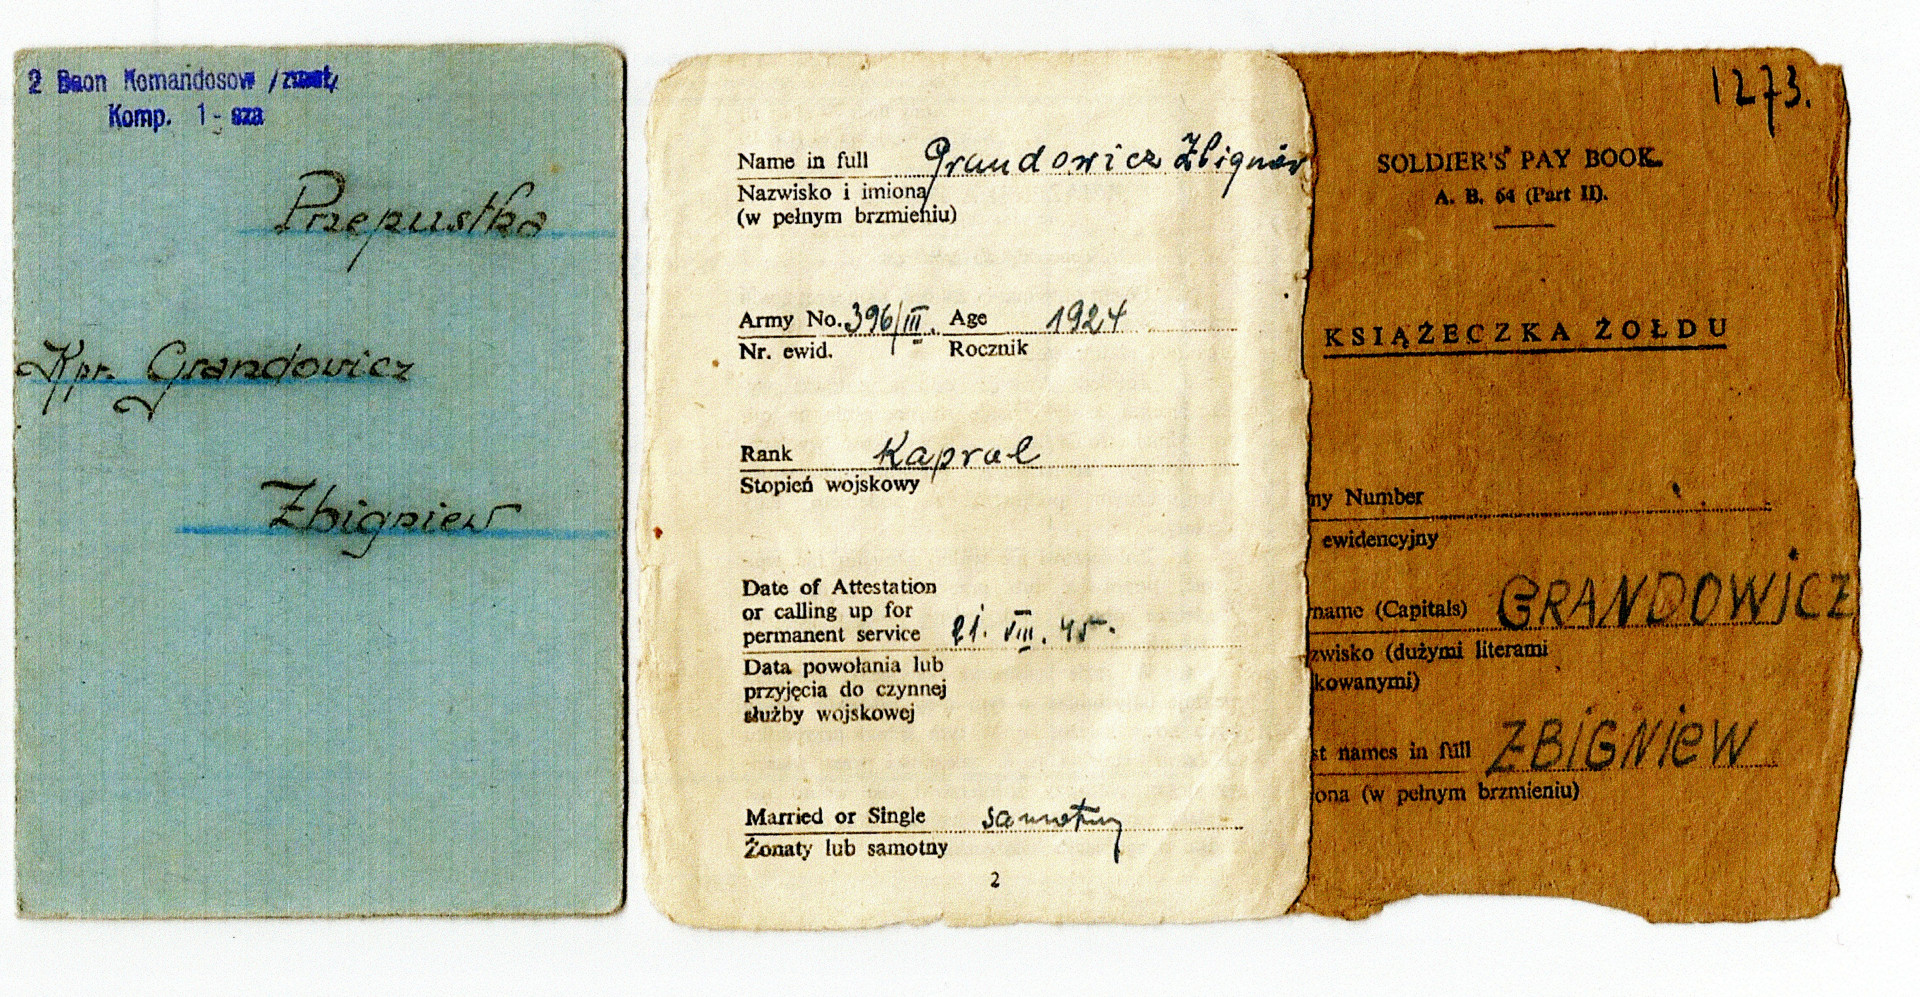 2 Baon Komandosow /zmot/
Komp. 1-sza
Przepustka
Kpr. Grandowicz
Zbigniew
Name in full Grandowicz Zbigniew
Nazwisko i imiona
(w pełnym brzmieniu)
Army No. 396/III. Age 1924
Nr. ewid. Rocznik
Rank Kapral
Stopień wojskowy
Date of Attestation
or calling up for
permanent service 21. VIII. 45.
Data powołania lub
przyjęcia do czynnej
służby wojskowej
Married or Single samotny
Żonaty lub samotny
2
1273.
SOLDIER'S PAY BOOK.
A. B. 64 (Part II).
KSIĄŻECZKA ŻOŁDU
my Number
ewidencyjny
name (Capitals) GRANDOWiCZ
zwisko (dużymi literami
kowanymi)
st names in full ZBiGNieW
ona (w pełnym brzmieniu)